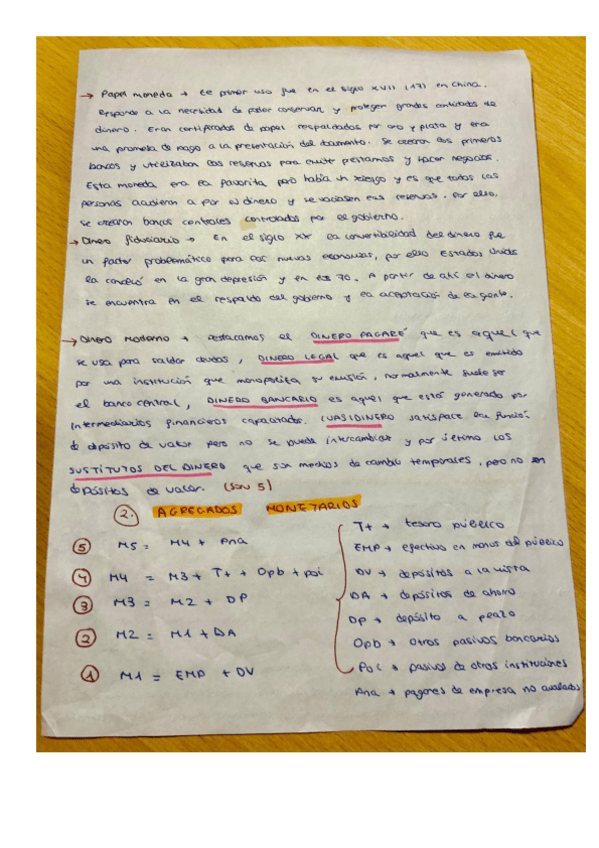 → Papel moneda → Ee primer uso fue en el siglo XVII (17) en China.
Responde a la necesidad de poder conservar y proteger grandes cantidades de
dinero. Eran certificados de papel respaldados por oro y plata y era
una promesa de pago a la presentación del documento. Se crearon los primeros
bancos y utilizaban las reservas para emitir prestamos y hacer negocios.
Esta moneda era la favorita pero había un riesgo y es que todas las
personas acudieran a por su dinero y se vaciasen las reservas. Por ello,
se crearon bancos centrales controlados por el gobierno.
→ Dinero fiduciario → En el siglo XX la convertibilidad del dinero fue
un factor problemático para las nuevas economías, por ello Estados Unidos
la canceló en la gran depresión y en los 70. A partir de ahí el dinero
se encuentra en el respaldo del gobierno y la aceptación de la gente.
→ Dinero Moderno → Destacamos el DINERO PAGARÉ que es aquel que
se usa para saldar deudas, DINERO LEGAL que es aquel que es emitido
por una institución que monopoliza su emisión, normalmente suele ser
el banco central, DINERO BANCARIO es aquel que está generado por
intermediarios financieros capacitados. CUASIDINERO satisface la función
de depósito de valor pero no se puede intercambiar y por último los
SUSTITUTOS DEL DINERO que son medios de cambio temporales, pero no son
depósitos de valor. (SON 5)
2. AGREGADOS MONETARIOS
⑤ M5 = M4 + Pna
④ M4 = M3 + T+ + Opb + poi
③ M3 = M2 + DP
② M2 = M1 + DA
① M1 = EMP + DV
T+ → tesoro público
EMP → efectivo en manos del público
DV → depósitos a la vista
DA → depósitos de ahorro
DP → depósito a plazo
Opb → Otros pasivos bancarios
Poi → pasivos de otros instituciones
Pna → pagares de empresa no avalados